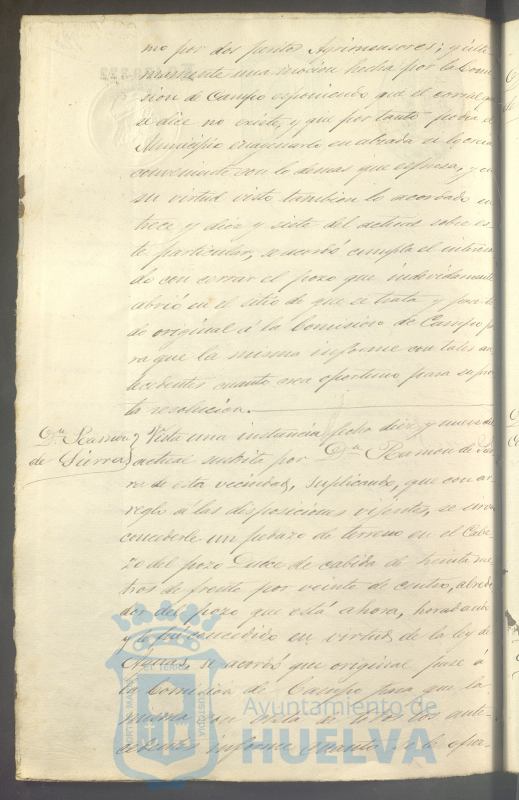 mo por dos peritos Agrimensores; y ulti-
mamente una mocion hecha por la Comi-
sion de Campo esponiendo que el corral que
se dice no existe, y que por tanto puede el
Municipio enagenarlo en alzada si lo cree
conveniente con lo demas que espresa, y en
su virtud visto tambien lo acordado en
trece y diez y siete del actual sobre es-
te particular, se acordó cumpla el interesa-
do con cerrar el pozo que indevidamente
abrió en el sitio de que se trata y pase to-
do original á la Comision de Campo pa-
ra que la misma informe con tales an-
tecedentes cuanto crea oportuno para su pron-
ta resolucion.
Dn. Ramon de Sierra
Vista una instancia fecha diez y nueve del
actual suscrita por Dn. Ramon de Sier-
ra de esta vecindad, suplicando, que con ar-
reglo á las disposiciones vijentes, se sirva
concederle un pedazo de terreno en el Cabe-
zo del pozo Dulce de cabida de treinta me-
tros de frente por veinte de centro, alrede-
dor del pozo que está ahora, horadando
y le fué concedido en virtud de la ley de
Aguas, se acordó que original pase á
la Comision de Campo para que la
misma con vista de todos los ante-
cedentes informe cuanto se le ofrez-
Ayuntamiento de
HUELVA